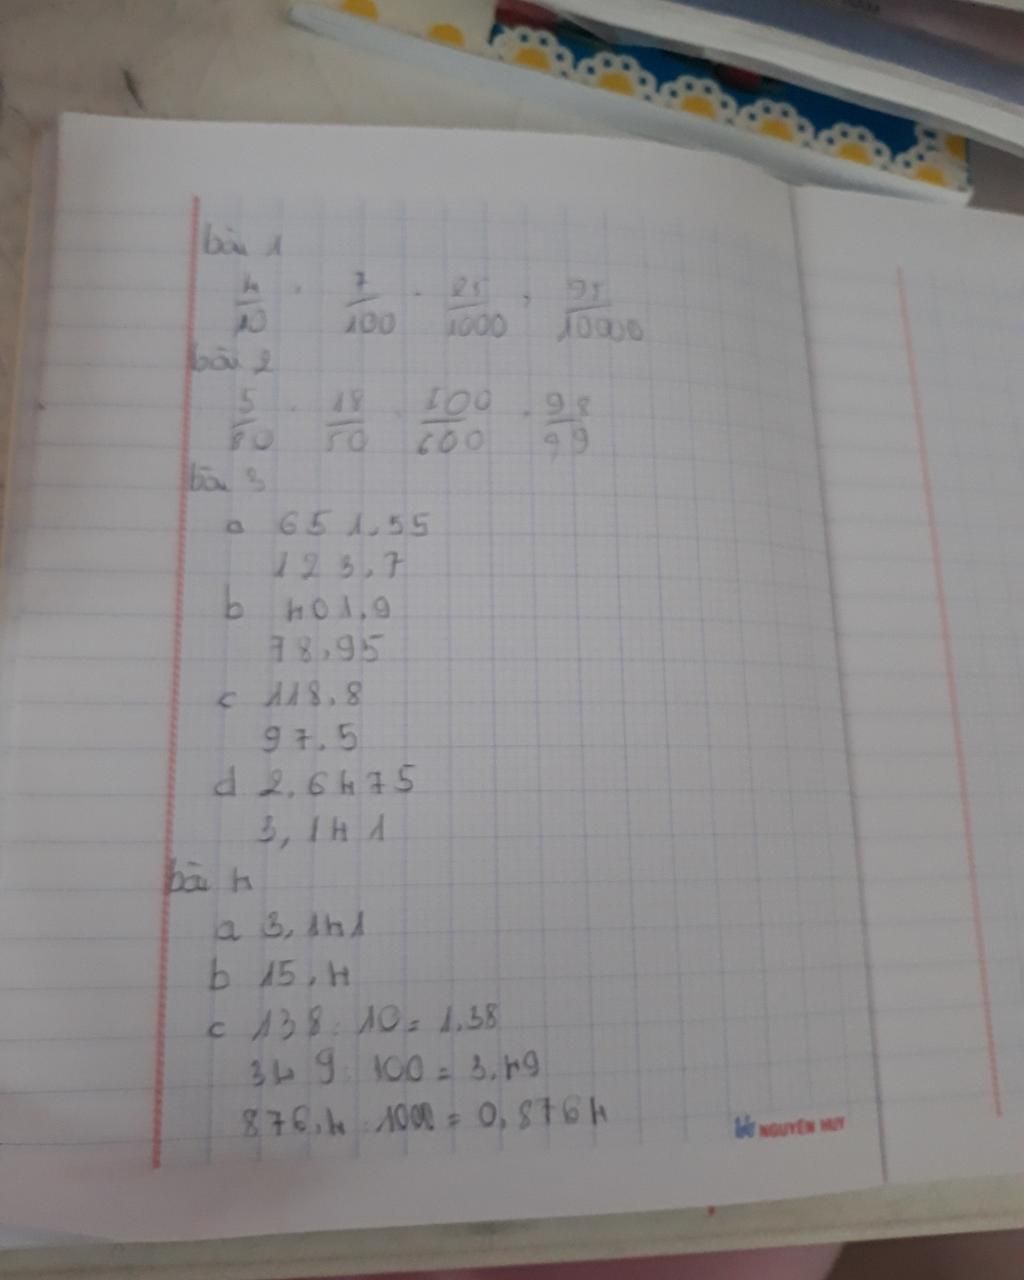 bài 1
4/10 . 7/100 . 25/1000 , 95/10000
bài 2
5/80 . 18/50 . 500/600 . 98/99
bài 3
a 651,55
123,7
b 401,9
78,95
c 118,8
97,5
d 2,6475
3,141
bài 4
a 3,141
b 15,4
c 138 : 10 = 1,38
349 : 100 = 3,49
876,4 : 1000 = 0,8764
NGUYÊN HUY